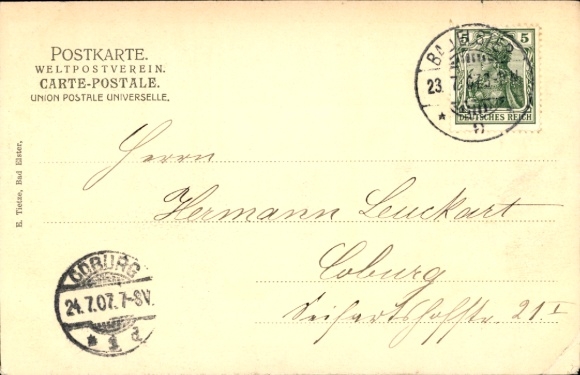 POSTKARTE.
WELTPOSTVEREIN.
CARTE-POSTALE.
UNION POSTALE UNIVERSELLE.
BAD ELSTER
23. 7.
5 5
DEUTSCHES REICH
E. Tietze, Bad Elster.
Herrn
Hermann Leuckart
Coburg
Seifartshofstr. 21 I
COBURG
24.7.07. 7-8V.
* 1 d